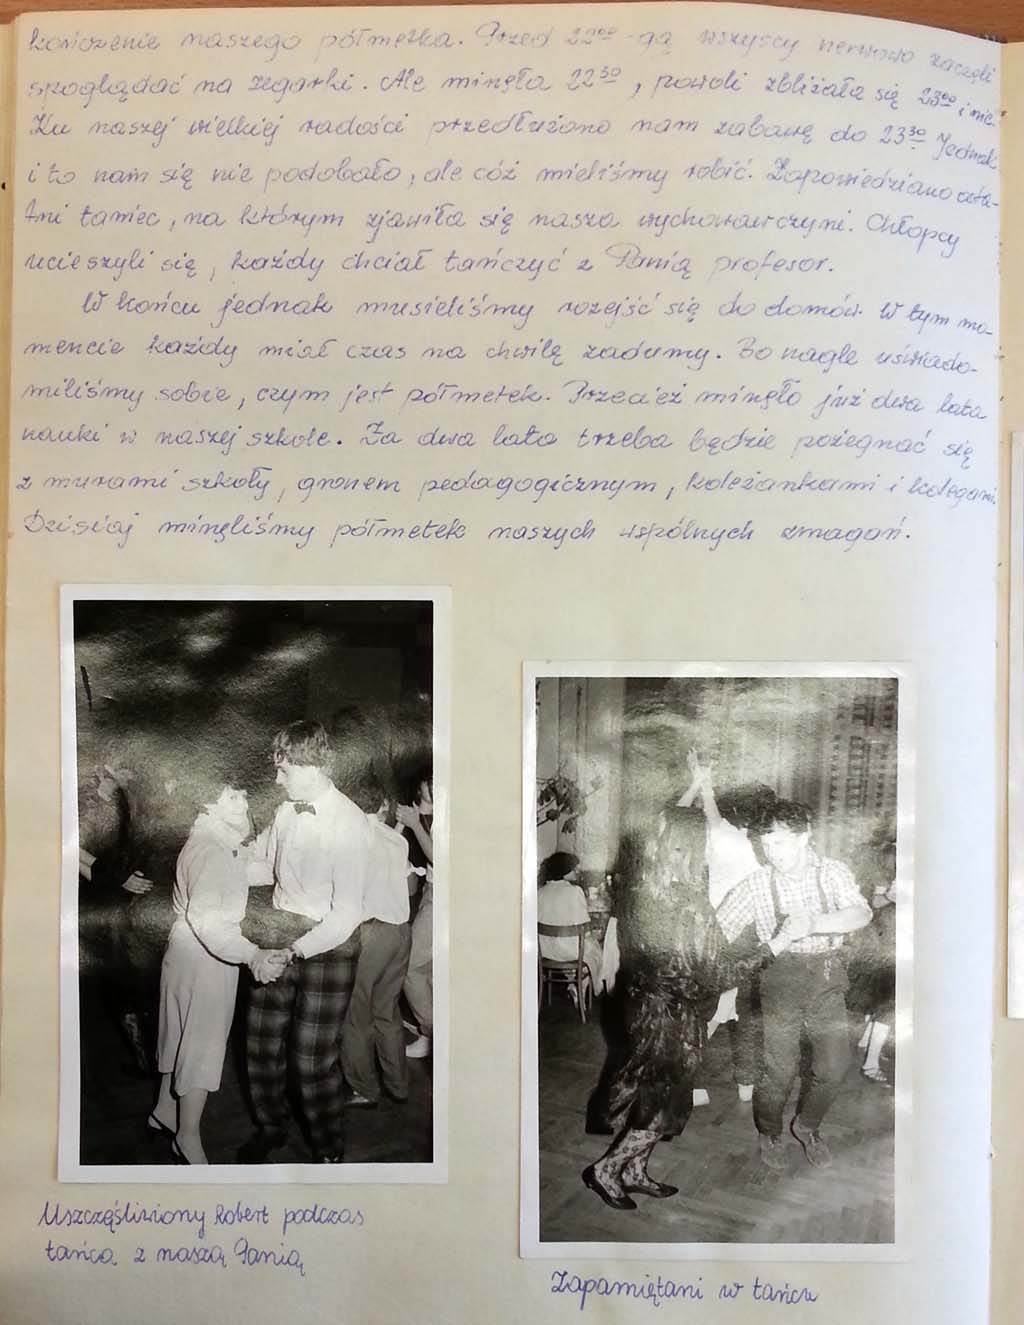 kończenie naszego półmetka. Przed 22⁰⁰-gą wszyscy nerwowo zaczęli
spoglądać na zegarki. Ale minęła 22³⁰, powoli zbliżała się 23⁰⁰ i nic.
Ku naszej wielkiej radości przedłużono nam zabawę do 23³⁰. Jednak
i to nam się nie podobało, ale cóż mieliśmy robić. Zapowiedziano osta-
tni taniec, na którym zjawiła się nasza wychowawczyni. Chłopcy
ucieszyli się, każdy chciał tańczyć z Panią profesor.
W końcu jednak musieliśmy rozejść się do domów. W tym mo-
mencie każdy miał czas na chwilę zadumy. Bo nagle uświado-
miliśmy sobie, czym jest półmetek. Przecież minęło już dwa lata
nauki w naszej szkole. Za dwa lata trzeba będzie pożegnać się
z murami szkoły, gronem pedagogicznym, koleżankami i kolegami.
Dzisiaj minęliśmy półmetek naszych wspólnych zmagań.
Uszczęśliwiony Robert podczas
tańca z naszą Panią
Zapamiętani w tańcu